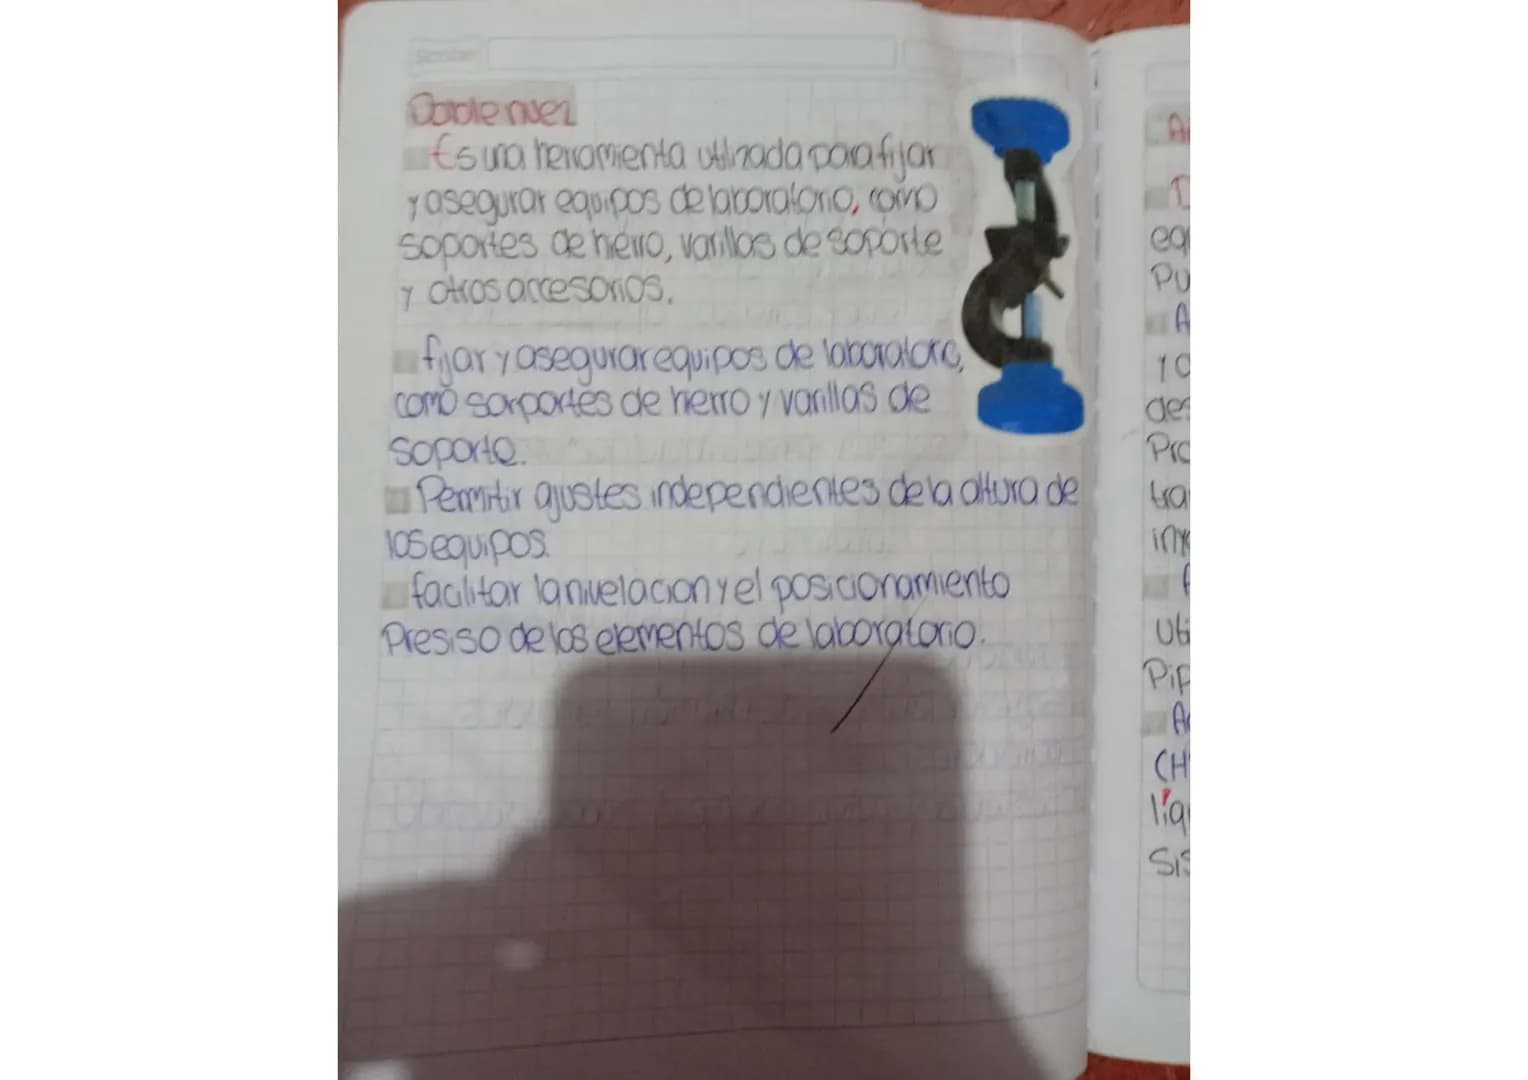 Scribe
Doble nuez
Es una herramienta utilizada para fijar
y asegurar equipos de laboratorio, como
soportes de hierro, varillas de soporte
y otros accesorios.
fijar y asegurar equipos de laboratoro,
como sorportes de hierro y varillas de
soporte.
Permitir ajustes independientes de la altura de
los equipos.
facilitar la nivelacion y el posicionamiento
Presiso de los elementos de laboratorio.
A
D
eq
Pu
A
y o
des
Pro
tra
iny
Uti
Pip
A
(H
liq
Sis